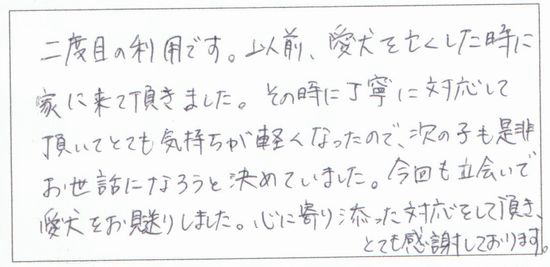 二度目の利用です。以前、愛犬を亡くした時に
家に来て頂きました。その時に丁寧に対応して
頂いてとても気持ちが軽くなったので、次の子も是非
お世話になろうと決めていました。今回も立会いで
愛犬をお見送りしました。心に寄り添った対応をして頂き、
とても感謝しております。